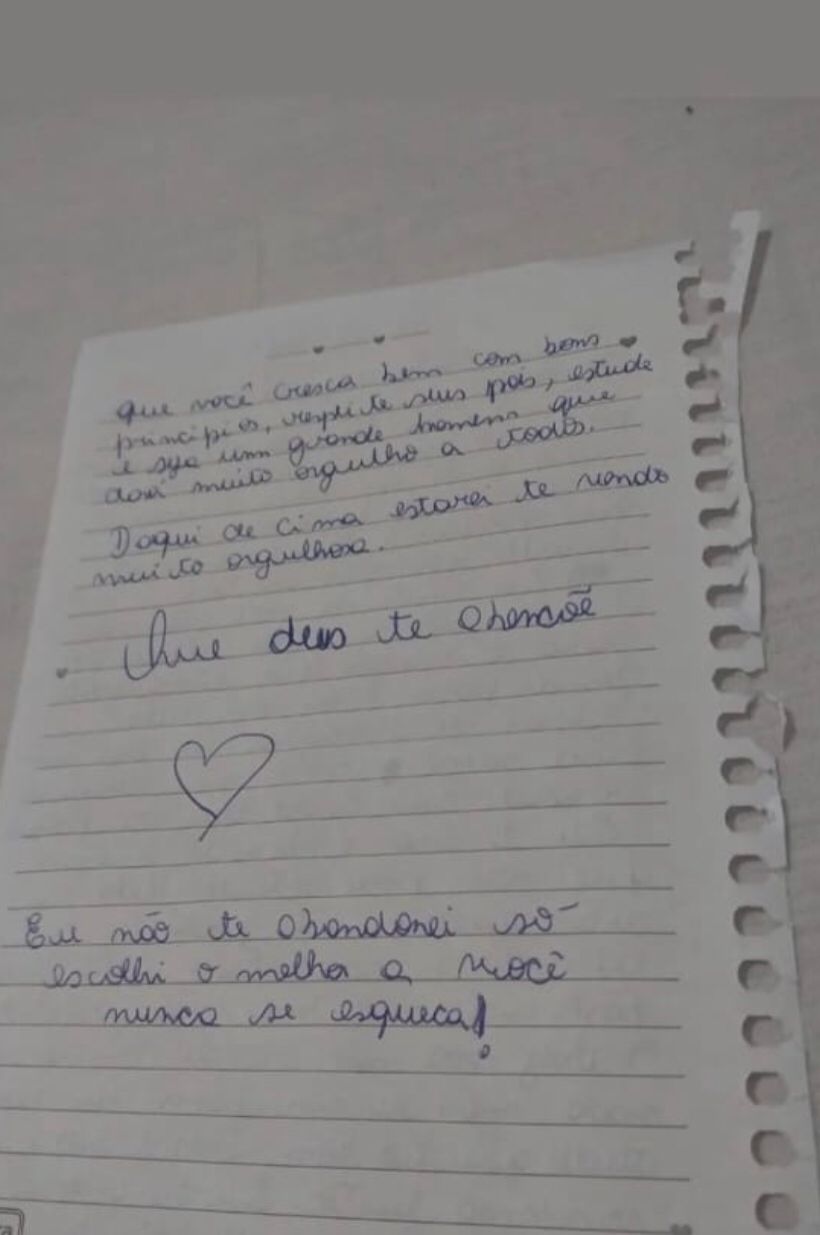 que você cresca bem com bons
principios, respeite seus pais, estude
e seja um grande homens que
dará muito orgulho a todos.
Daqui de cima estarei te vendo
muito orgulhosa.
Que deus te abencõe
Eu não te abandonei só
escolhi o melhor a você
nunca se esqueca!